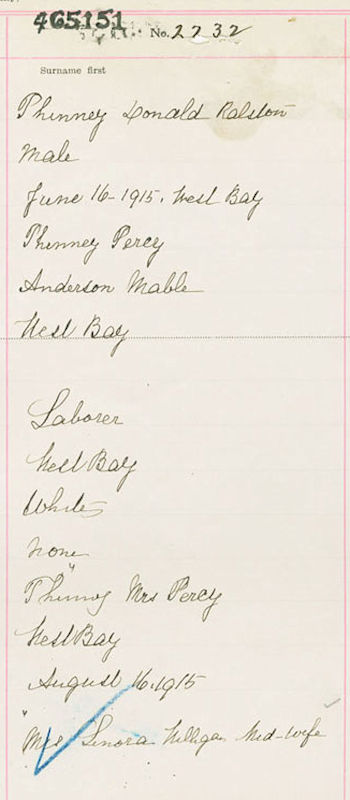 465151
No. 2732
Surname first
Phinney Donald Ralston
Male
June 16-1915. West Bay
Phinney Percy
Anderson Mable
West Bay
Laborer
West Bay
White
None
Phinney Mrs Percy
West Bay
August 16.1915
" Mrs Lenora Milligan Mid-wife